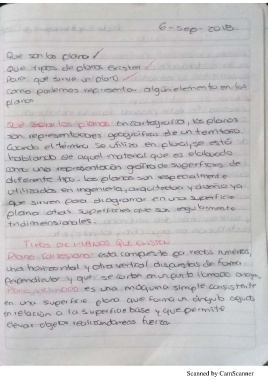 6-sep-2018
Que son los plano
Que tipos de planos existen
Para que sirve un plano
como podemos representar algun elemento en los
planos
Que son los planos en cartografia, los planos
son representaciones geografica de un territorio
Cuando el termino se utiliza en plural, se está
hablando de aquel material que es elaborado
como una representación grafica de superficies de
diferente tipo. los planos son especialmente
utilizados en ingenieria, arquitectura y diseño ya
que sirven para diagramar en una superficie
plana otras superficies que son regularmente
tridimensionales.
TIPOS DE PLANOS QUE EXISTEN
Plano cartesiano: esta compuesto por recta numerica,
una horizontal y otra vertical dispuestas de forma
perpendicular y que se corta en un punto llamado origen.
Plano inclinado es una máquina simple consistente
en una superficie plana que forma un ángulo agudo
en relación a la superficie base y que permite
elevar objetos realizando menos fuerza
Scanned by CamScanner